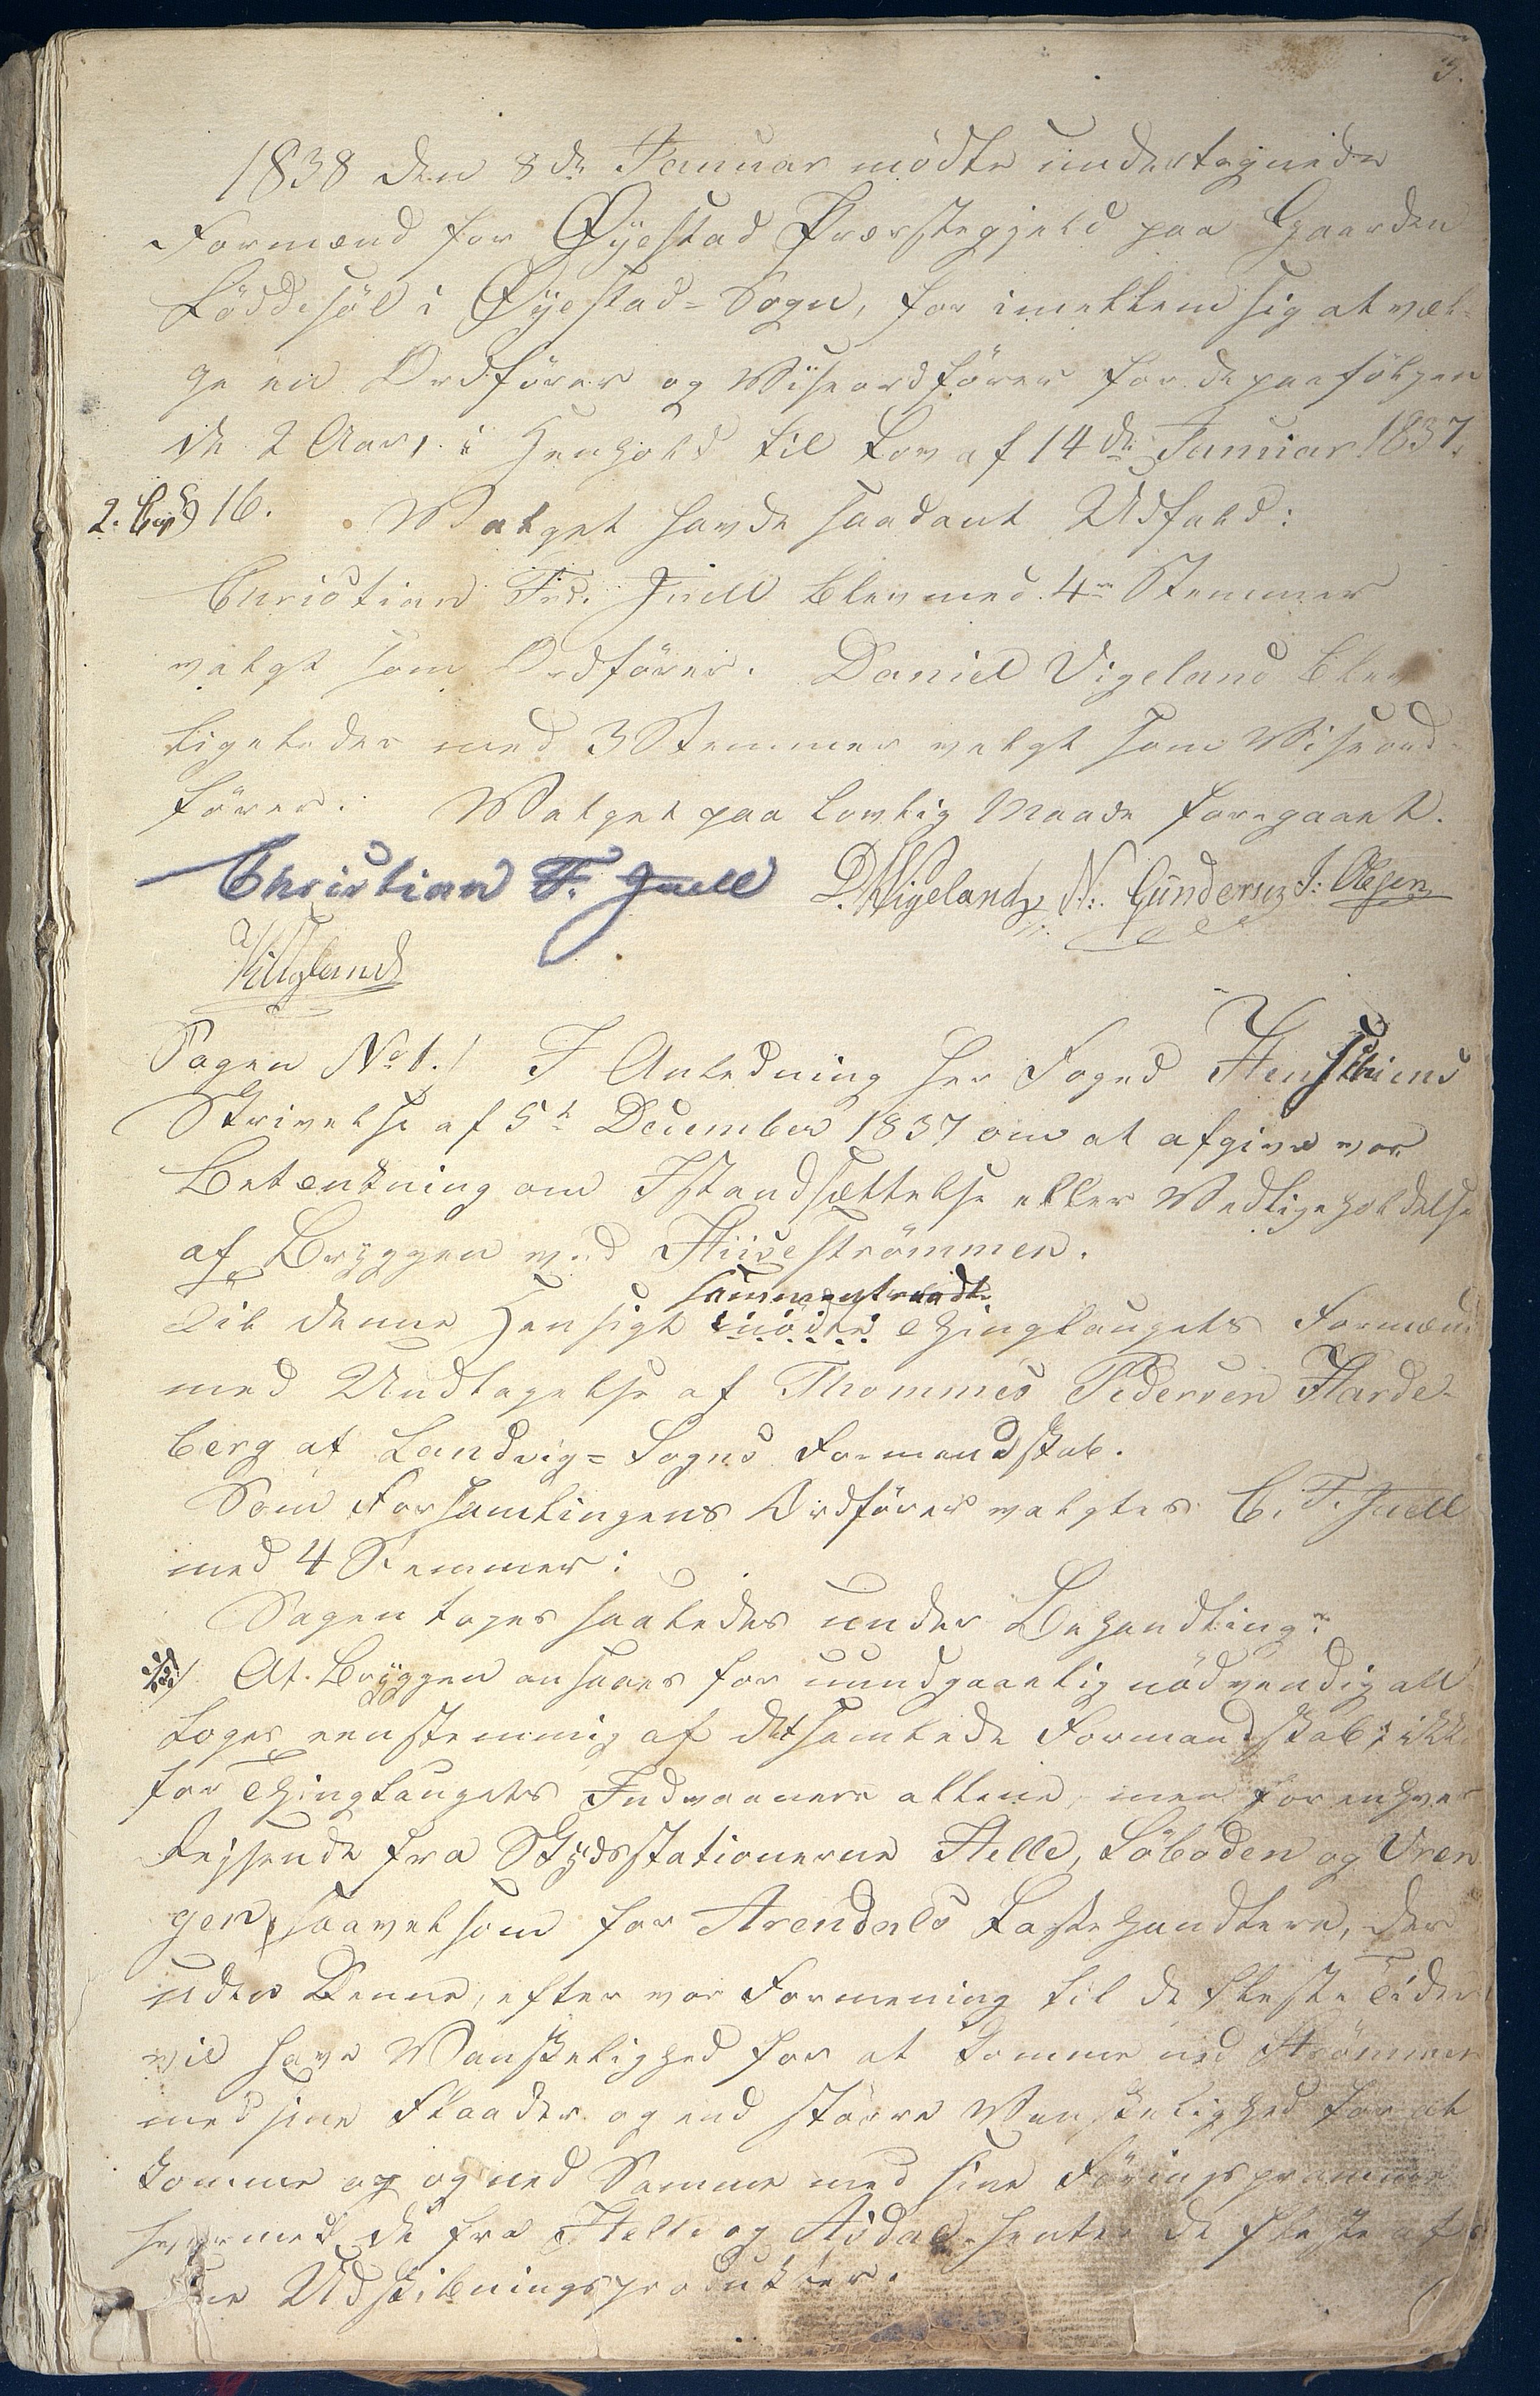 3.
1838 den 8de Januar mödte undertegnede
Formænd for Øyestad Præstegjeld paa Gaarden
Löddesöl i Øyestad-Sogn, for imellem sig at væl-
ge en Ordförer og Viseordförer for de paafölgen
de 2 Aar, i Henhold til Lov af 14de Januar 1837.
2. Cap § 16. Valget havde saadant Udfald:
Christian Frd. Juell blev med 4re Stemmer
valgt som Ordförer. Daniel Vigeland blev
ligeledes med 3 Stemmer valgt som Viseord-
förer. Valget paa lovlig Maade foregaaet.
Christian F. Juell D. Wigeland N. Gundersen J: Olsen
Sagen No 1./ I Anledning Her Foged
Skrivelse af 5te December 1837 om at afgive vor
Betænkning om Istandsættelse eller Vedligeholdelse
af Bryggen ved Hiiseströmmen.
sammentraadte
Til denne Hensigt mödte Thinglaugets Formænd
med Undtagelse af Thommes Pedersen Harde-
berg af Landvig-Sogns Formandskab.
Som Forsamlingens Ordförer valgtes C. F. Juell
med 4 Stemmer:
Sagen toges saaledes under Behandling:
At Bryggen ansaaes for uundgaaelig nödvendig
toges eenstemmig af det samlede Formandskab; ikke
for Thinglaugets Indvaanere allene, men for enhver
Rejsende fra Skydsstationerne Helle, Löboden og Vren
gen, saavelsom for Arendals Lastehandlere, der
uden Denne, efter vor Formening til de fleste Tider
vil have Vanskelighed for at komme ned Strömmen
med sine Flaader og end större Vanskelighed for at
komme op og ned Samme med sine Föringspramme
hvormed de fra Helle og Asdal henter de fleste af
sine Udskibningsprodukter.